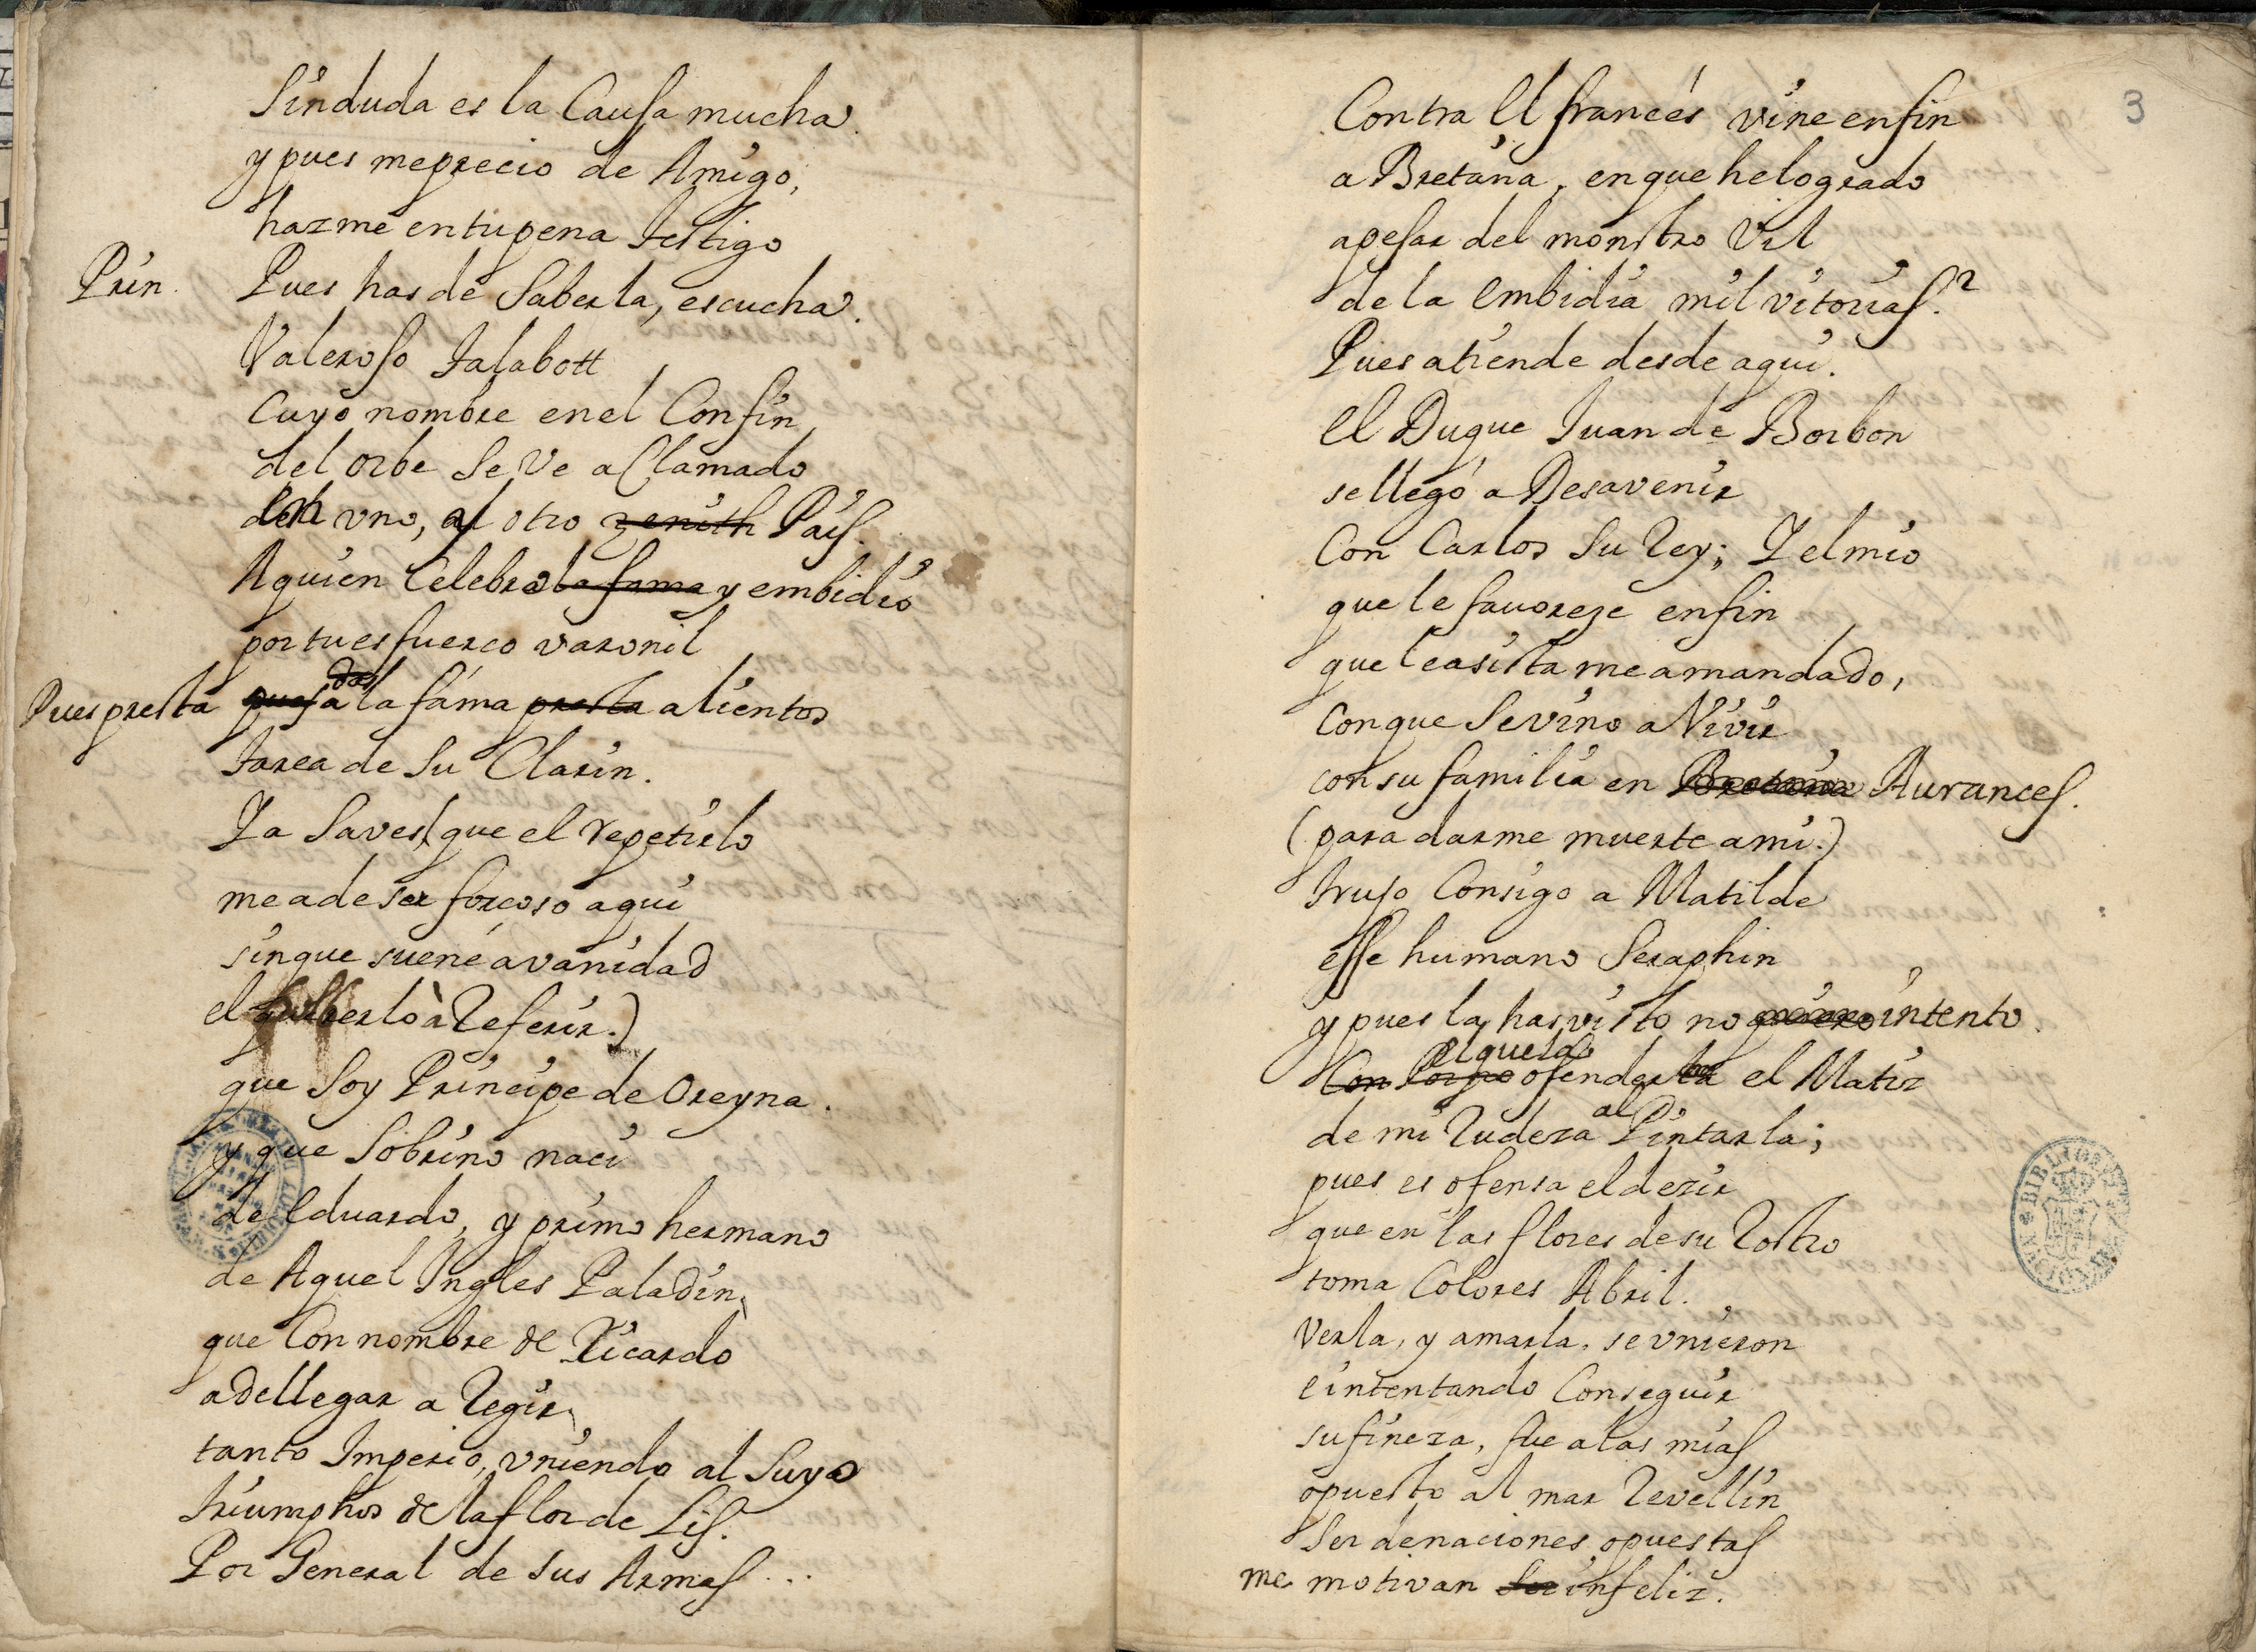 Sinduda es la Causa mucha
y pues meprecio de Amigo,
hazme entupena testigo
Prin. Pues has de Saberla, escucha.
Valeroso Talabott
Cuyo nombre enel Confin
del orbe Se Ve aClamado
del uno, al otro zenith Pais.
Aquien Celebra la fama y embidió
por tu esfuerco varonil
Pues presta pues a la fáma presta alientos
tarea de Su Clarin.
Ya Saves (que el repetirlo
me a de ser forcoso aqui
sinque suene avanidad
el à Referir.)
que Soy Principe de Oreyna.
y que Sobrino naci
de Eduardo, y primo hermano
de Aquel Ingles Paladin,
que Con nombre de Ricardo
adellegar a Regir,
tanto Imperio, uniendo al Suyo
triumphos de la flor de Lis.
Por General de sus Armas...
3
Contra El francés vine enfin
a Bretaña, enque he logrado
apesar del monstro Vil
de la Embidia mil vitorias.
Pues atiende desde aqui.
El Duque Juan de Borbon
se llegó a Desavenir
Con Carlos Su Rey; Y elmio
que le favoreze enfin
que leasista me a mandado,
Conque Se vino a Vivir
con su familia en Bretaña Aurances.
(para darme muerte ami.)
trujo Consigo a Matilde
esse humano Seraphin
y pues la has visto no quiero intento.
Con Porque el que la ofenda el Matiz
de mi Rudeza al Pintarla;
pues es ofensa el dezir
que en las flores de su Rostro
toma Colores Abril.
Verla, y amarla, se unieron
e intentando Conseguir
su fineza, fue a las mias
opuesto al mar Revellin
Ser denaciones opuestas
me motivan Ser infeliz.